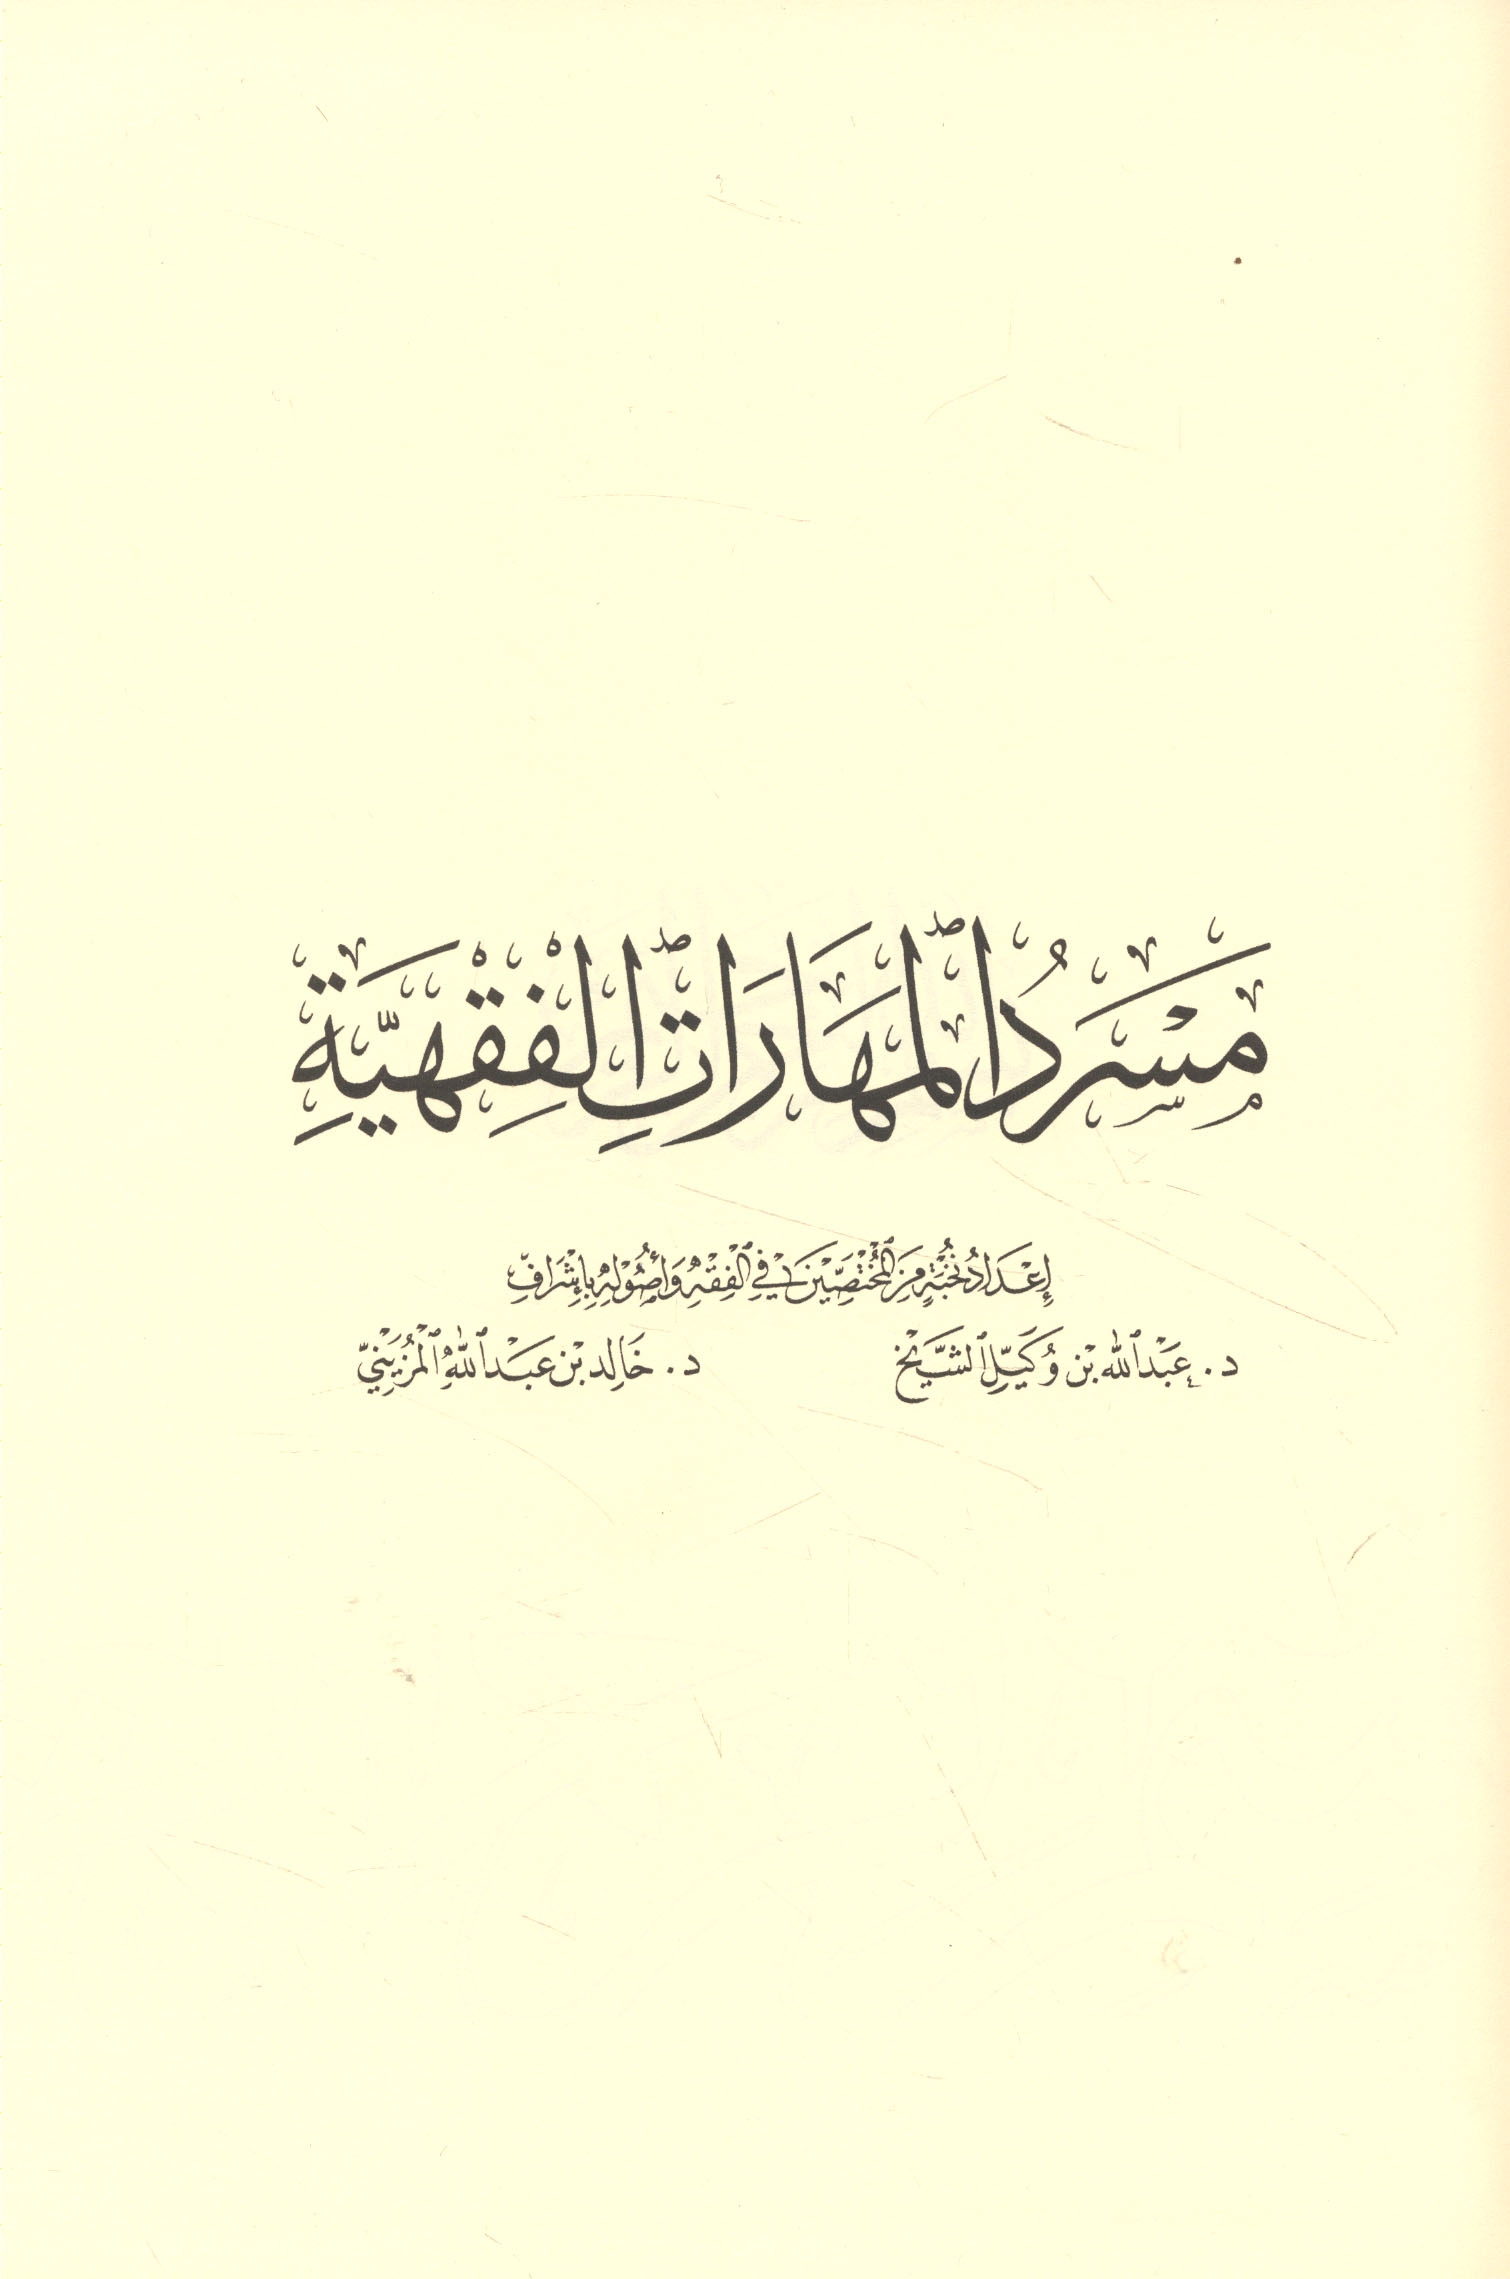 مَسْرَدُ الْمَهَارَاتِ الْفِقْهِيَّةِ
إِعْدَادُ نُخْبَةٍ مِنَ الْمُخْتَصِّيْنَ فِي الْفِقْهِ وَأُصُوْلِهِ بِإِشْرَافِ
د. عَبْدُ اللهِ بْن وُكَيِّل الشَّيْخ
د. خَالِد بْن عَبْدِ اللهِ الْمُزَيِنِيّ